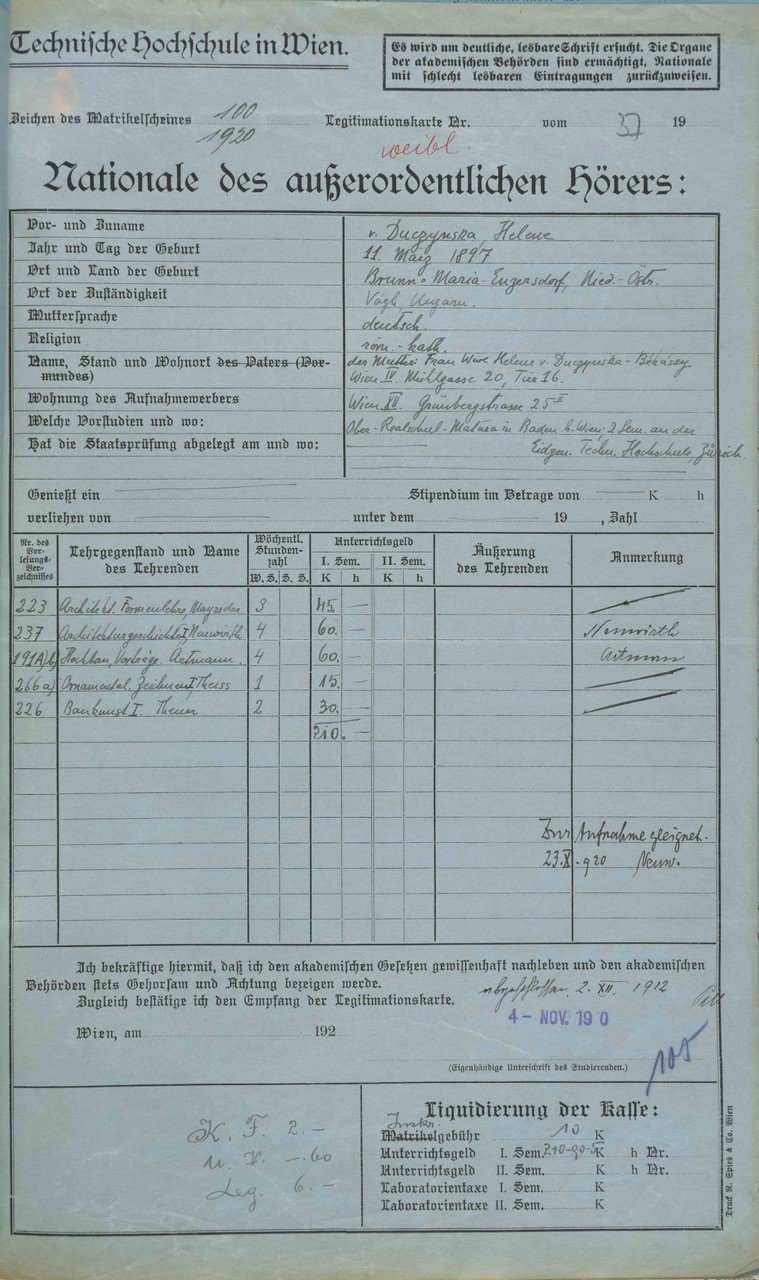 Technische Hochschule in Wien.
Es wird um deutliche, lesbare Schrift ersucht. Die Organe
der akademischen Behörden sind ermächtigt, Nationale
mit schlecht lesbaren Eintragungen zurückzuweisen.
Zeichen des Matrikelscheines 100 Legitimationskarte Nr. vom 37 19
1920
weibl.
Nationale des außerordentlichen Hörers:
Vor- und Zuname v. Duczynska, Helene
Jahr und Tag der Geburt 11. März 1897
Ort und Land der Geburt Brunn-Maria-Enzersdorf, Nied.-Östr.
Ort der Zuständigkeit Vágh Ungarn.
Muttersprache deutsch.
Religion röm.-kath.
Name, Stand und Wohnort des Vaters (Vor- der Mutter: Frau Wwe Helene v. Duczynska-Békásey
mundes) Wien IV. Mühlgasse 20, Tür 16.
Wohnung des Aufnahmewerbers Wien XII. Grünbergstrasse 25
Welche Vorstudien und wo: Ober-Realschul-Matura in Baden b. Wien; 2 Sem. an der
Hat die Staatsprüfung abgelegt am und wo: Eidgen. Techn. Hochschule, Zürich.
Genießt ein Stipendium im Betrage von K h
verliehen von unter dem 19 , Zahl
Nr. des Vorlesungs-Verzeichnisses
Lehrgegenstand und Name des Lehrenden
Wöchentl. Stundenzahl
W. S. S. S.
Unterrichtsgeld
I. Sem. II. Sem.
K h K h
Äußerung des Lehrenden
Anmerkung
223 Architekt. Formenlehre Mayreder 3 45.—
237 Architekturgeschichte I Neuwirth 4 60.— Neuwirth
191A)b) Hochbau, Vorträge. Artmann. 4 60.— Artmann
266a) Ornamental. Zeichnen I Theiss 1 15.—
226 Baukunst I. Theuer 2 30.—
210.—
Zur Aufnahme geeignet.
23.X.920 Neuw.
Ich bekräftige hiermit, daß ich den akademischen Gesetzen gewissenhaft nachleben und den akademischen
Behörden stets Gehorsam und Achtung bezeigen werde.
Zugleich bestätige ich den Empfang der Legitimationskarte.
abgeschlossen, 2. XII. 1912
4- NOV. 19 0
Wien, am 192
(Eigenhändige Unterschrift des Studierenden.)
105
K. F. 2.—
u. V. —.60
Leg. 6.—
Liquidierung der Kasse:
Inskr.
Matrikelgebühr 10 K
Unterrichtsgeld I. Sem. 210-90-5 K h Nr.
Unterrichtsgeld II. Sem. K h Nr.
Laboratorientaxe I. Sem. K
Laboratorientaxe II. Sem. K
Druck R. Spies & Co. Wien